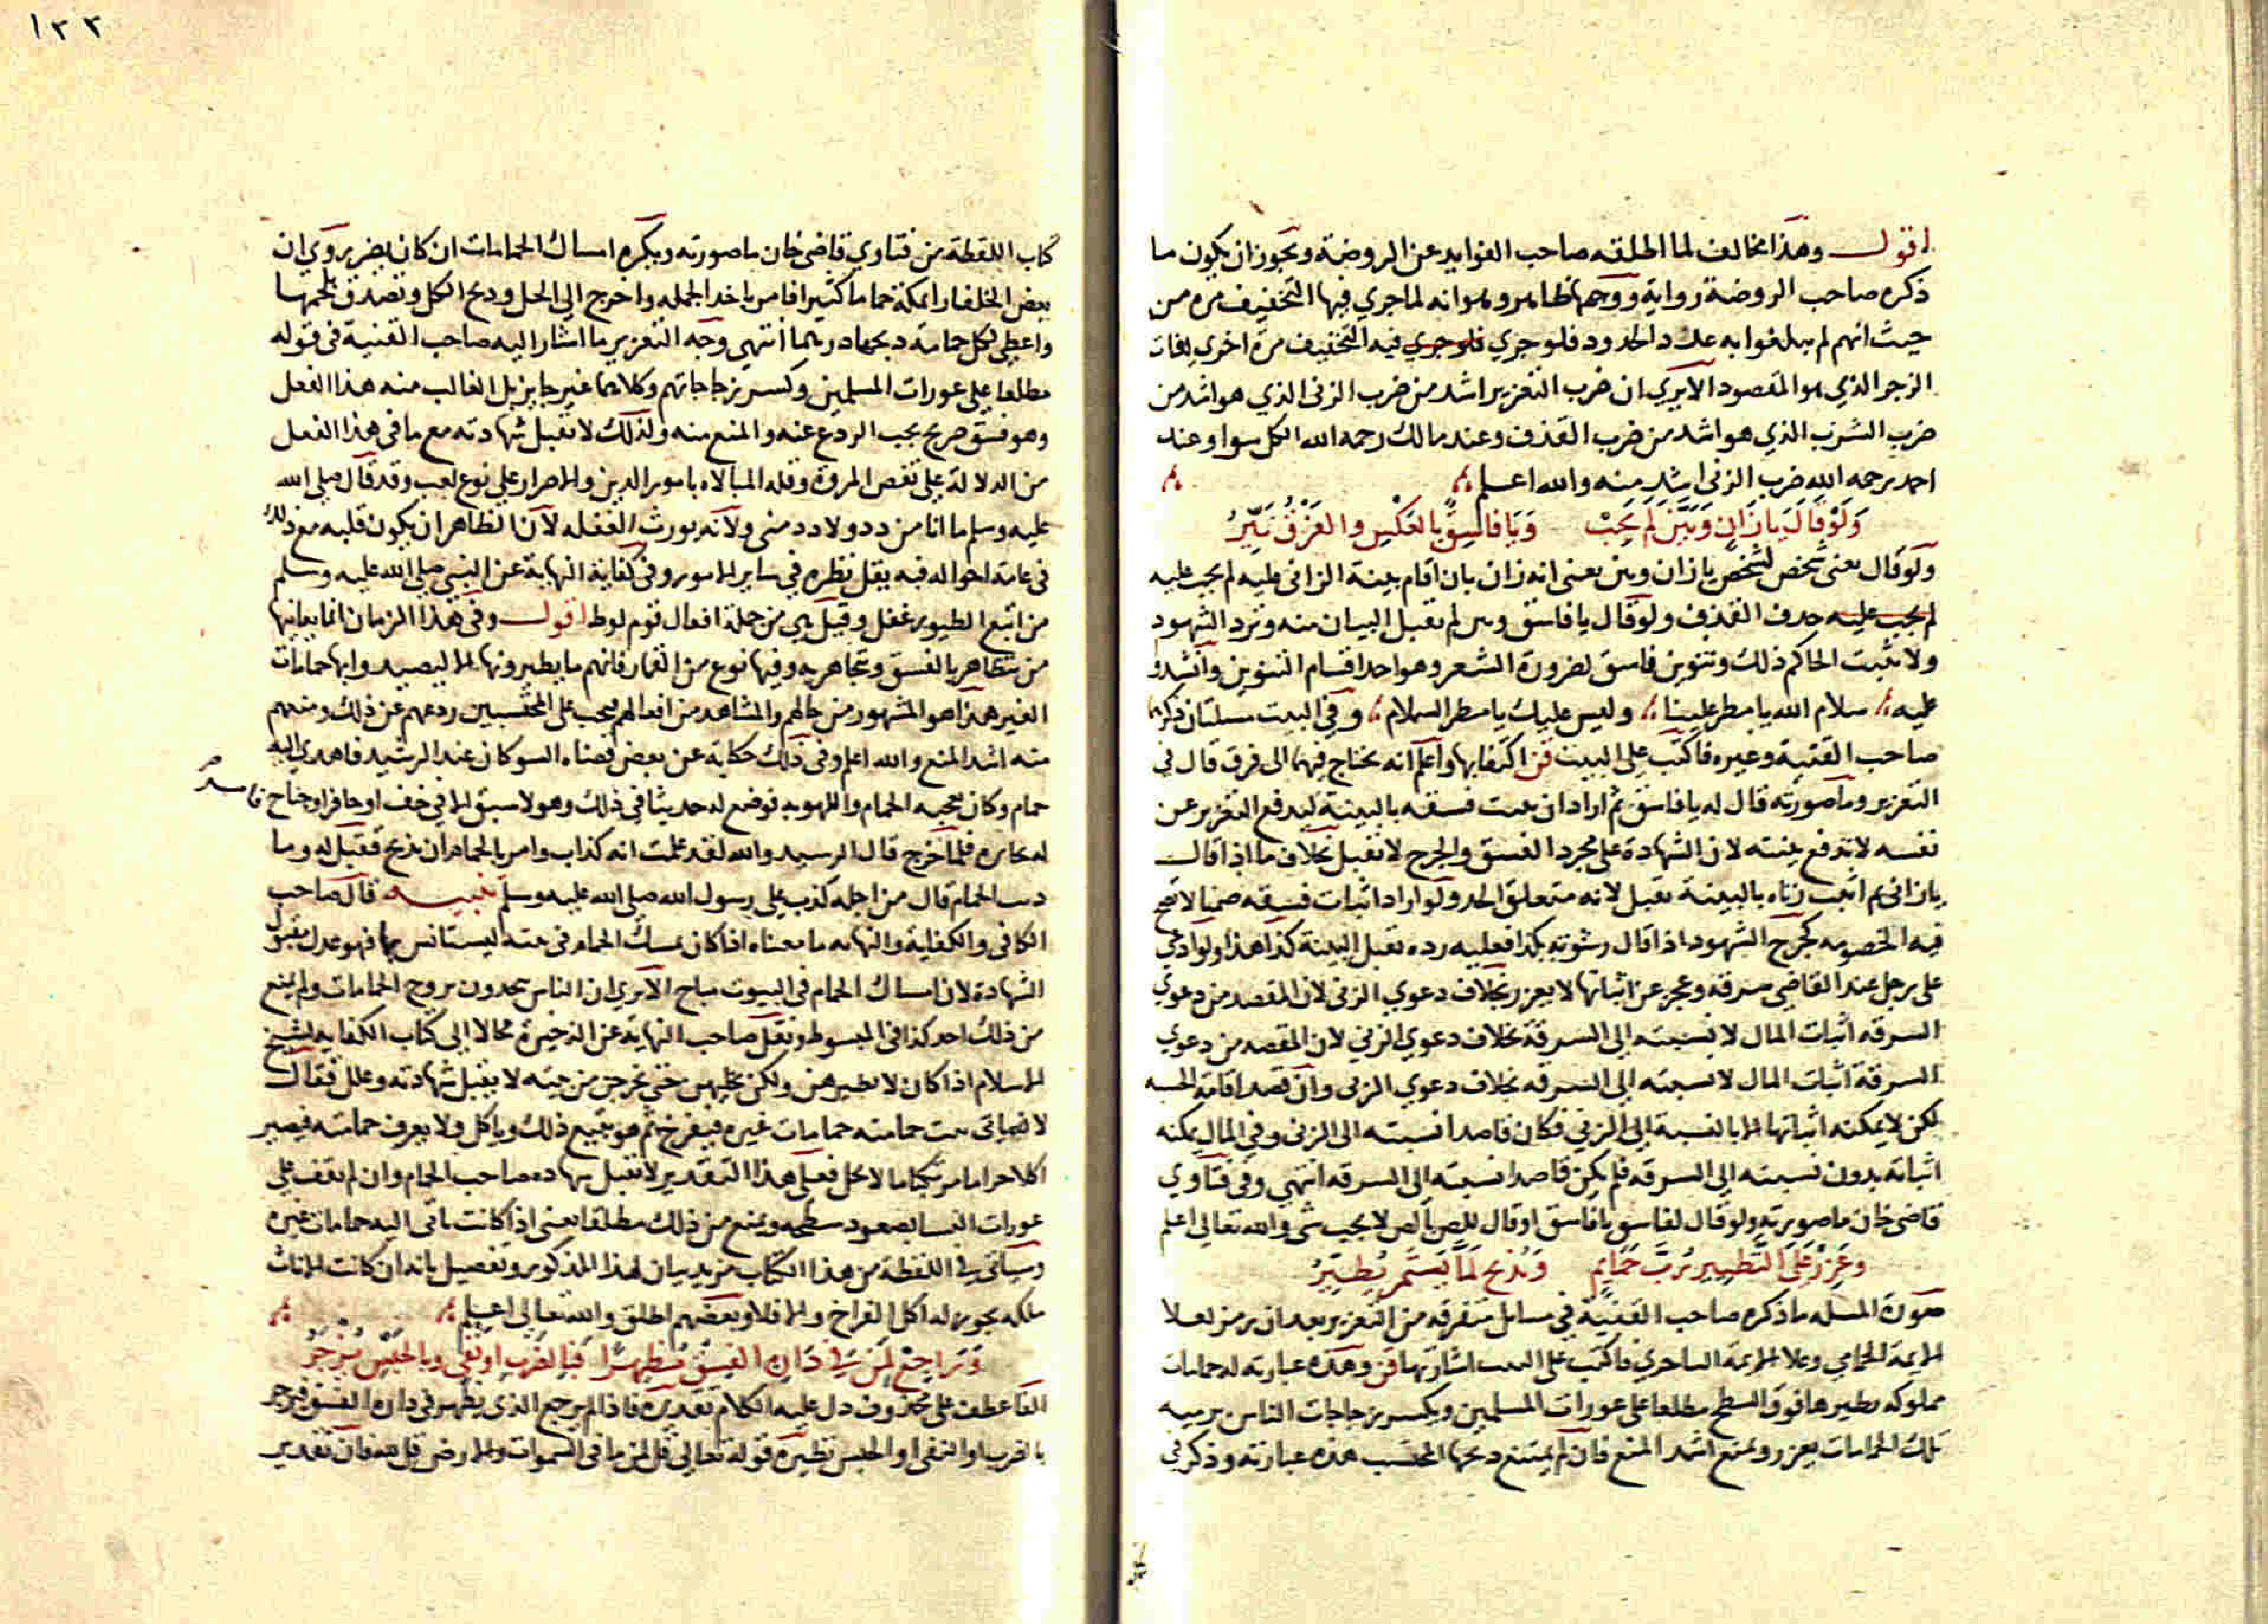 اقول وهذا مخالف لما اطلقه صاحب الفوايد عن الروضة ويجوز ان يكون ما
ذكره صاحب الروضة رواية ووجهها ظاهر وهو انه لما جري فيها التخفيف مرة من
حيث انهم لم يبلغوا به عدد الحدود فلو جري فلو جري فيه التخفيف مرة اخري لفات
الزجر الذي هو المقصود الا يري ان ضرب التعزير اشد من ضرب الزنى الذي هو اشد من
ضرب الشرب الذي هو اشد من ضرب القذف وعند مالك رحمه الله الكل سوا وعند
احمد رحمه الله ضرب الزنى اشد منه والله اعلم
وَلَوْ قَالَ يا زَانٍ وَبَيَّنَ لَم يَجِبْ ويا فاسِقٌ بالعكس والفرق نيّرُ
ولو قال يعني شخص لشخص يا زان وبين يعنى انه زان بان اقام بينة الزانى عليه لم يجب عليه
لم يجب عليه حد القذف ولو قال يا فاسق وبين لم تقبل البيان منه وترد الشهود
ولا يثبت الحاكم ذلك وتنوين فاسق لضرورة الشعر وهو احد اقسام التنوين وانشدوا
عليه سلام الله يا مطر علينا وليس عليك يا مطر السلام وفي البيت مسلتان ذكرهما
صاحب القنية وغيره فاكتب على البيت قن اكتفا بها واعلم انه يحتاج فيهما الى فرق قال في
التعزير وما صورته قال له يا فاسق ثم اراد ان يثبت فسقه بالبينة ليدفع التعزير عن
نفسه لا تدفع بينته لان الشهادة على مجرد الفسق والجرح لا تقبل بخلاف ما اذا قال
يا زانى ثم اثبت زناه بالبينة تقبل لانه متعلق الحد ولو اراد اثبات فسقه ضمنا لا تصح
فيه الخصومه كجرح الشهود اذا قال رشوته بكذا فعليه رده تقبل البينة كذا هذا ولو ادعى
على رجل عند القاضي سرقة وعجز عن اثباتها لا يعزر بخلاف دعوي الزنى لان المقصد من دعوي
السرقه اثبات المال لا نسبته الى السرقة بخلاف دعوي الزني لان المقصد من دعوي
السرقة اثبات المال لا نسبته الى السرقه بخلاف دعوي الزنى وان قصد اقامة الحسبه
لكن لا يمكنه اثباتها الا بالنسبة الى الزني فكان قاصدا نسبته الى الزنى وفي المال يمكنه
اثباته بدون نسبته الى السرقه فلم يكن قاصدا نسبته الى السرقه انتهي وفى فتاوي
قاضى خان ما صورته ولو قال لفاسق يا فاسق او قال للص يا لص لا يجب شي والله تعالي اعلم
وعَزِّرْ عَلَى التَّطْيِير رُبَّ حَمَايِمٍ وتُذبح لمّا يَستمر يُطيِّرُ
صورة المسله ما ذكره صاحب القنية في مسايل متفرقه من التعزير بعد ان رمز لعلا
الايمة الحمامي وعلا الايمة الساحري فاكتب على البيت اشارتها قن وهذه عبارته له حمامات
مملوكه يطيرها فوق السطح مطلعا على عورات المسلمين ويكسر زجاجات الناس برميه
تلك الحمامات يعزر ويمنع اشد المنع فان لم يمتنع ذبحها المحتسب هذه عبارته وذكر في
١٣٣
كتاب اللقطة من فتاوي قاضى خان ما صورته ويكره امساك الحمامات ان كان يضر روي ان
بعض الخلفا راي بمكة حماما كثيرا فامر باخذ الجمله واخرج الي الحل وذبح الكل وتصدق بلحمها
واعطي لكل حمامة ذبحها درهما انتهي وجه التعزير ما اشار اليه صاحب القنية في قوله
مطلعا على عورات المسلمين وكسر زجاجاتهم وكلاهما غير جايز بل الغالب منه هذا الفعل
وهو فسق صريح يجب الردع عنه والمنع منه ولذلك لا تقبل شهادته مع ما في هذا الفعل
من الدلالة على نقص المروة وقله المبالاه بامور الدين والاصرار على نوع لعب وقد قال صلى الله
عليه وسلم ما انا من دد ولا دد مني ولانه يورث الغفله لان الظاهر ان يكون قلبه مع ذلك
في عامة احواله فيه يقل نظره في ساير الامور وفي كفاية النهاية عن النبي صلى الله عليه وسلم
من اتبع الطيور غفل وقيل هي من جملة افعال قوم لوط اقول وفي هذا الزمان انما يعانيها
من يتظاهر بالفسق ويتجاهر به وفيها نوع من القمار فانهم ما يطيرونها الا ليصيدوا بها حمامات
الغير هذا هو المشهور من حالهم والمشاهد من افعالهم فيجب على المحتسبين ردعهم عن ذلك ومنعهم
منه اشد المنع والله اعلم وفى ذلك حكاية عن بعض قضاه السو كان عند الرشيد فاهدي اليه
حمام وكان يعجبه الحمام واللهو به فوضع له حديثا في ذلك وهو لا سبق الا في خف او حافر او جناح فامر
له بجايزه فلما خرج قال الرشيد والله لقد علمت انه كذاب وامر بالحمام ان يذبح فقيل له وما
ذنب الحمام قال من اجله كذب على رسول الله صلى الله عليه وسلم تنبيه قال صاحب
الكافي والكفاية والنهايه ما معناه اذا كان يمسك الحمام في بيته ليستانس بها فهو عدل مقبول
الشهادة لان امساك الحمام في البيوت مباح الا يري ان الناس يتخذون بروج الحمامات ولم يمنع
من ذلك احد كذا في المبسوط ونقل صاحب النهاية عن الذخيرة محالا الى كتاب الكفايه لشيخ
الاسلام اذا كان لا يطيرهن ولكن يخليهن حتى يخرجن من بيته لا يقبل شهادته وعلل فقال
لانه ياتى بيت حمامته حمامات غيره فيفرخ ثم هو يبيع ذلك وياكل ولا يعرف حمامته فيصير
اكلا حراما مرتكبا ما لا يحل فعلى هذا التقدير لا تقبل شهاده صاحب الحمام وان لم يقف على
عورات النسا بصعود سطحه ويمنع من ذلك مطلقا يعنى اذا كانت تاتى اليه حمامات غيره
وسياتى في اللقطة من هذا الكتاب مزيد بيان لهذا المذكور وتفصيل بانه ان كانت الاناث
ملكه يجوز له اكل الفراخ والا فلا وبعضهم اطلق والله تعالى اعلم
وَرَاجِعْ لِمَن في دَارِهِ الفِسقَ مُظهِرًا فبالضرب او نفي وبالحبس يُزجرُ
الفا عطف على محذوف دل عليه الكلام تقديره فاذا لم يرجع الذي يظهر في داره الفسق فيزجر
بالضرب او النفى او الحبس نظيره قوله تعالى قل لمن ما في السموات والارض قل لله فان تقدير